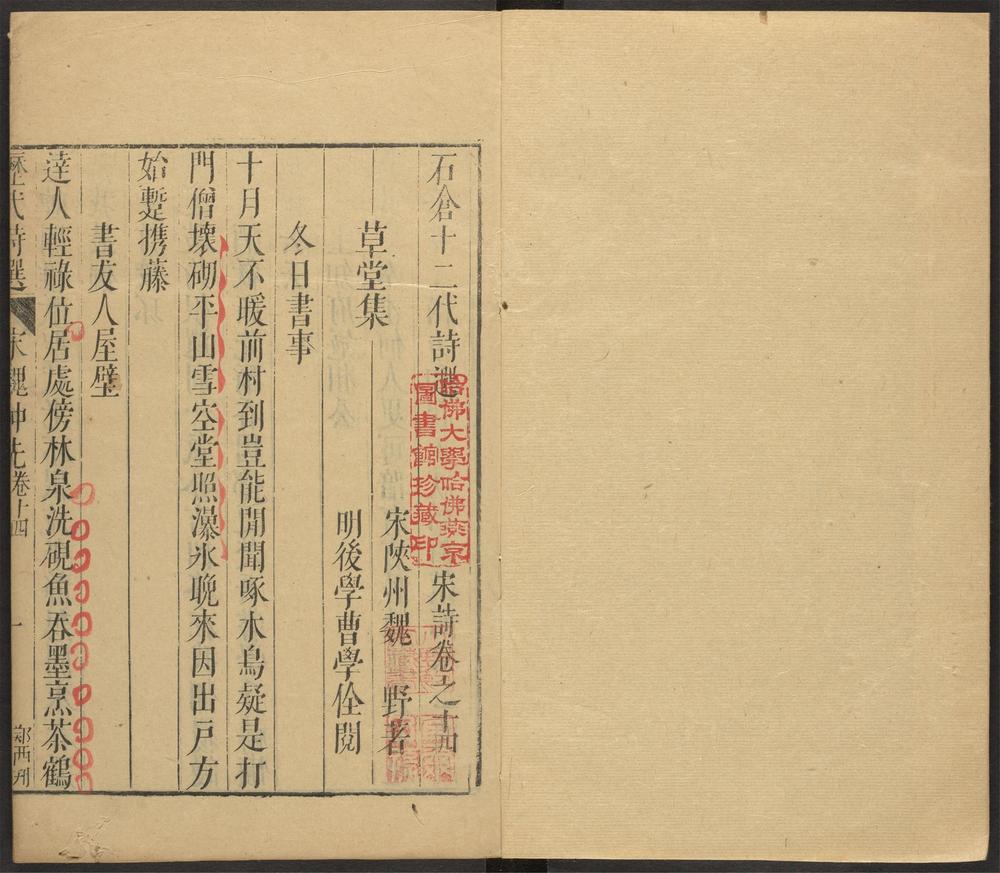 石倉十二代詩選
宋詩卷之十四
宋陝州魏 野著
草堂集
明後學曹學佺閱
冬日書事
十月天不暖前村到豈能閒聞啄木鳥疑是打
門僧壞砌平山雪空堂照瀑氷晩來因出戸方
始蹔携藤
書友人屋壁
達人輕祿位居處傍林泉洗硯魚吞墨烹茶鶴
歷代詩選
宋魏仲先卷十四
一
郑西刋
哈佛大學哈佛燕京
圖書館珍藏印